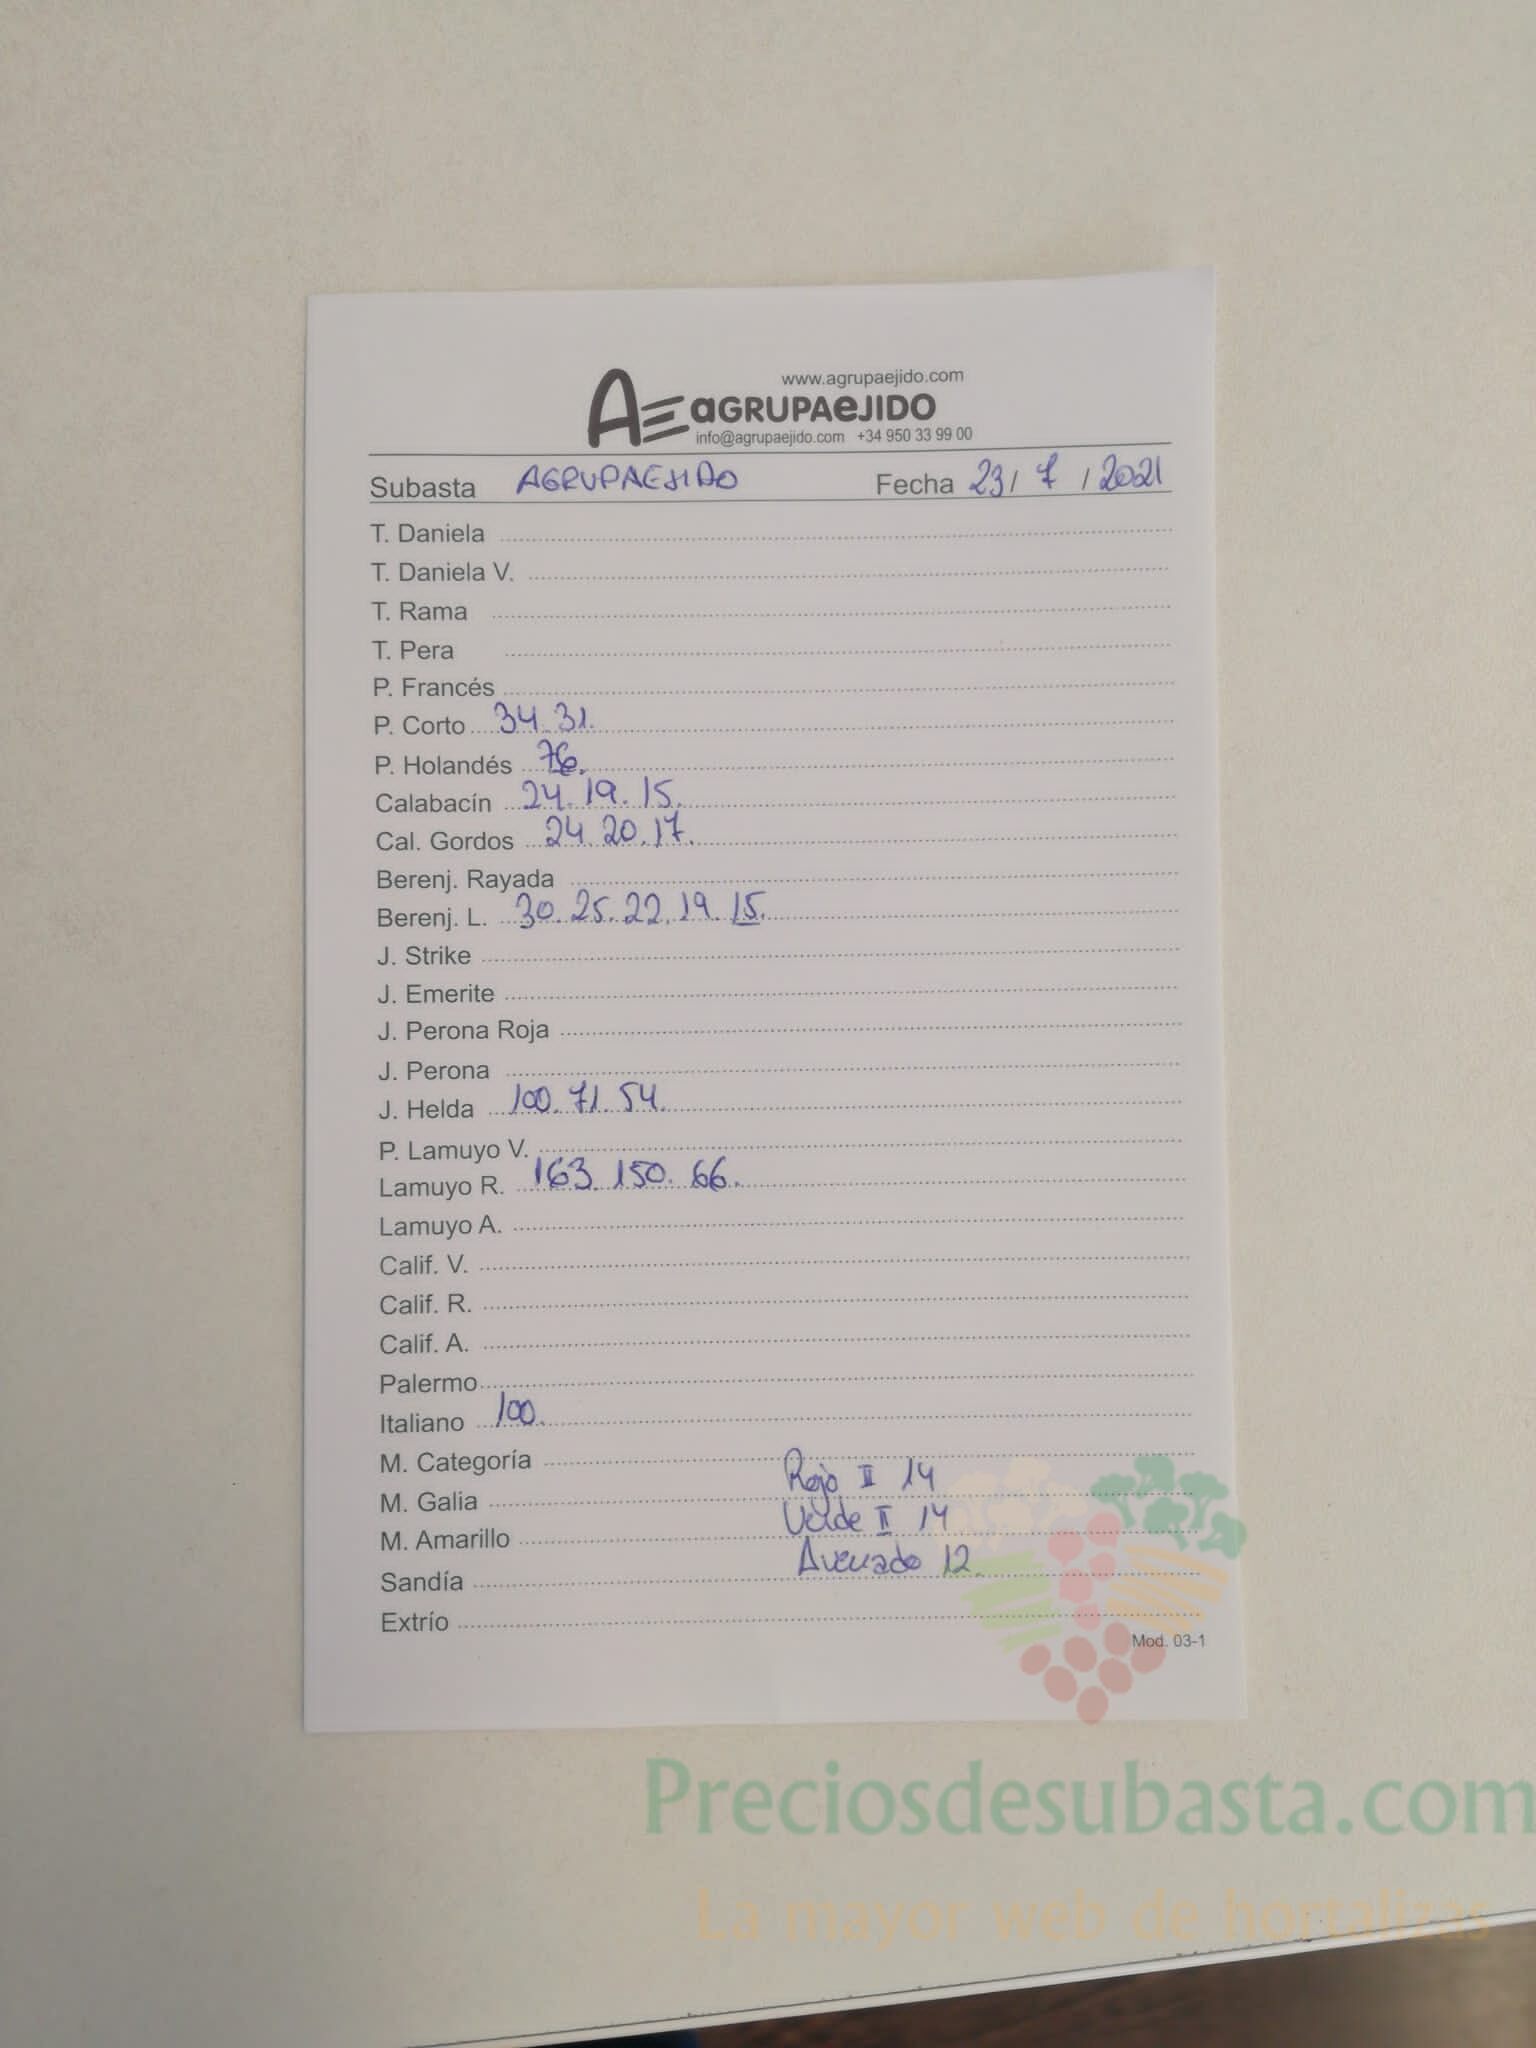 www.agrupaejido.com
AE aGRUPAeJIDO
info@agrupaejido.com +34 950 33 99 00
Subasta AGRUPAEJIDO Fecha 23/ 7 / 2021
T. Daniela
T. Daniela V.
T. Rama
T. Pera
P. Francés
P. Corto 34. 31.
P. Holandés 76.
Calabacín 24. 19. 15.
Cal. Gordos 24. 20. 17.
Berenj. Rayada
Berenj. L. 30. 25. 22. 19. 15.
J. Strike
J. Emerite
J. Perona Roja
J. Perona
J. Helda 100. 71. 54.
P. Lamuyo V.
Lamuyo R. 163. 150. 66.
Lamuyo A.
Calif. V.
Calif. R.
Calif. A.
Palermo
Italiano 100.
M. Categoría
Rojo II 14
M. Galia
Verde II 14
M. Amarillo
Averiado 12.
Sandía
Extrío
Mod. 03-1
Preciosdesubasta.com
La mayor web de hortalizas